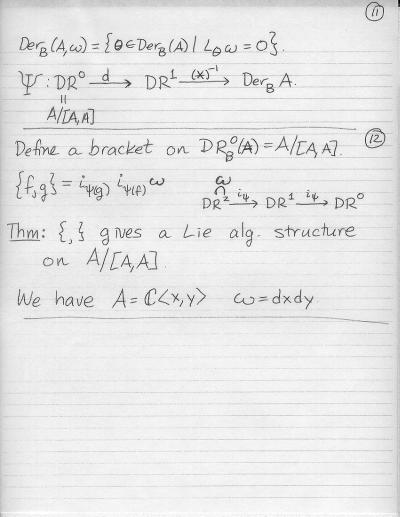 ⑪
Der_B(A,ω) = {θ∈Der_B(A) | L_θ ω = 0}.
Ψ : DR⁰ —d→ DR¹ —(*)⁻¹→ Der_B A.
||
A/[A,A]
Define a bracket on DR_B⁰(A) = A/[A,A]. ⑫
{f,g} = i_ψ(g) i_ψ(f) ω
ω
∩
DR² —i_ψ→ DR¹ —i_ψ→ DR⁰
Thm: {,} gives a Lie alg. structure
on A/[A,A]
We have A = ℂ<x,y> ω = dxdy